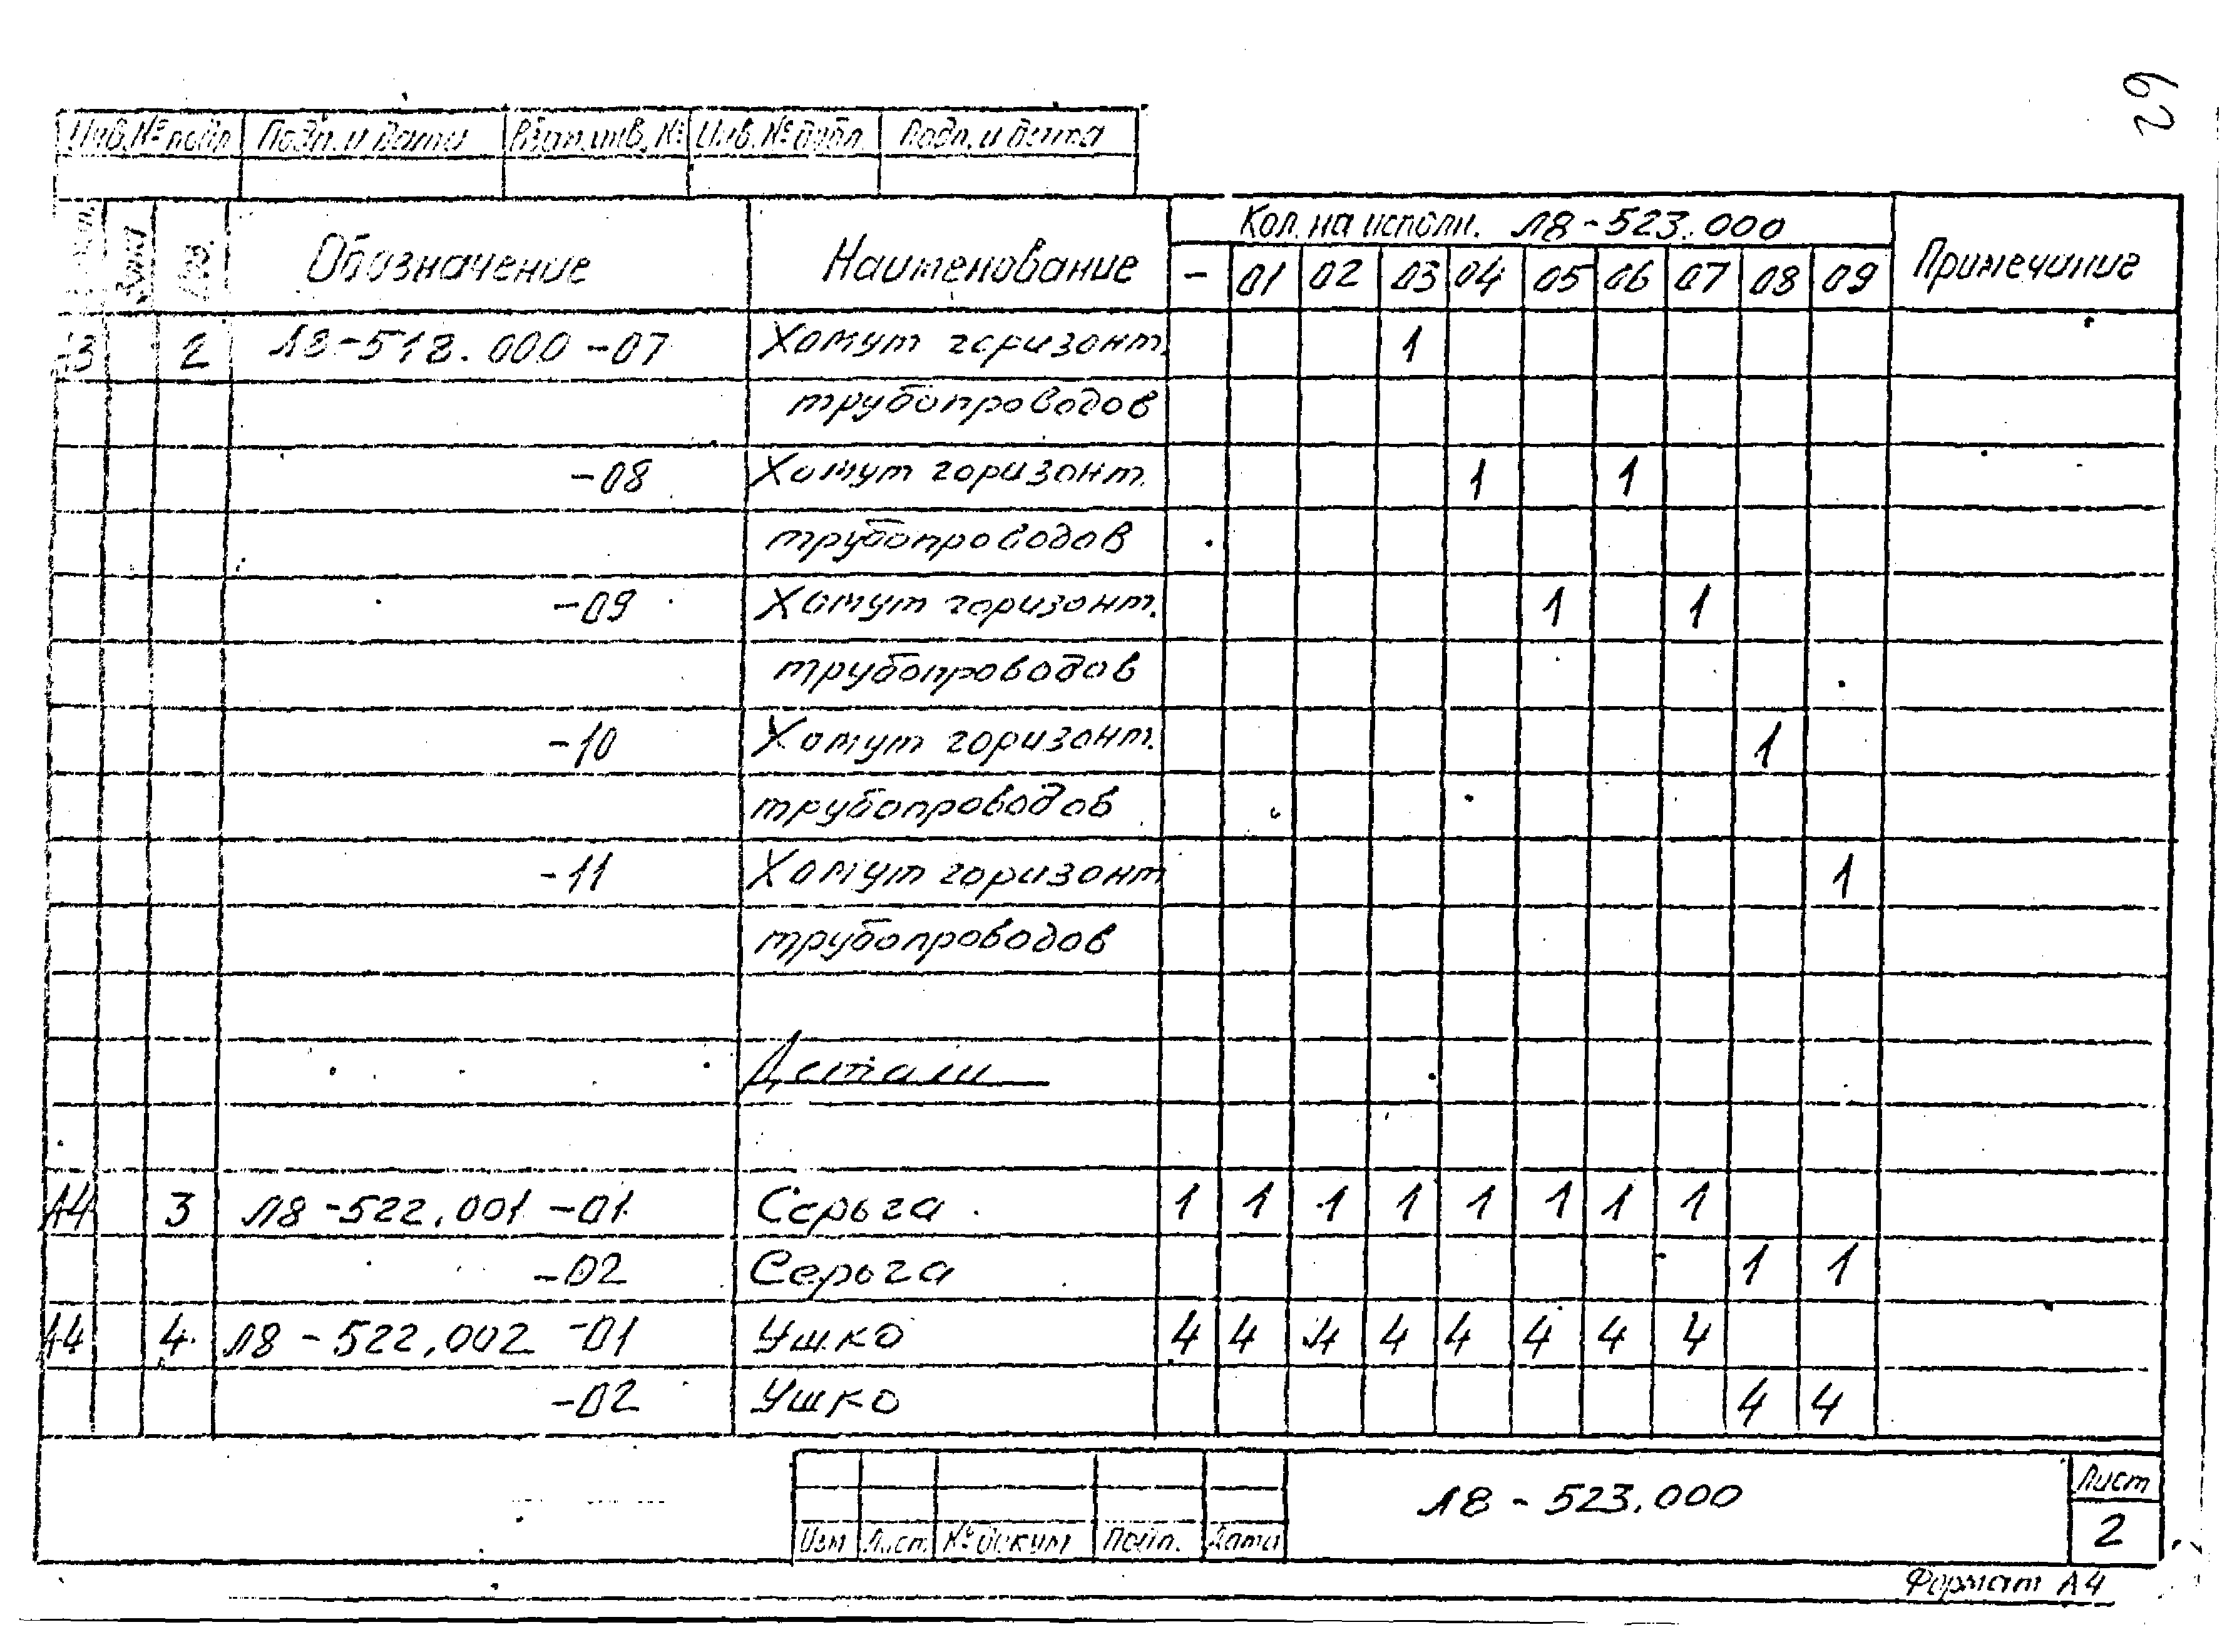 29
Инв.№ подл Подп. и дата Взам.инв.№ Инв.№ дубл. Подп. и дата
Кол. на исполн. Л8-523.000
Зона Поз. Обозначение Наименование - 01 02 03 04 05 06 07 08 09 Примечание
А3 2 Л8-518.000 -07 Хомут горизонт. 1
трубопроводов
-08 Хомут горизонт. 1 1
трубопроводов
-09 Хомут горизонт. 1 1
трубопроводов
-10 Хомут горизонт. 1
трубопроводов
-11 Хомут горизонт 1
трубопроводов
Детали
А4 3 Л8-522.001 -01 Серьга 1 1 1 1 1 1 1 1
-02 Серьга 1 1
А4 4 Л8-522.002 -01 Ушко 4 4 4 4 4 4 4 4
-02 Ушко 4 4
Л8-523.000 Лист
Изм Лист № докум Подп. Дата 2
Формат А4